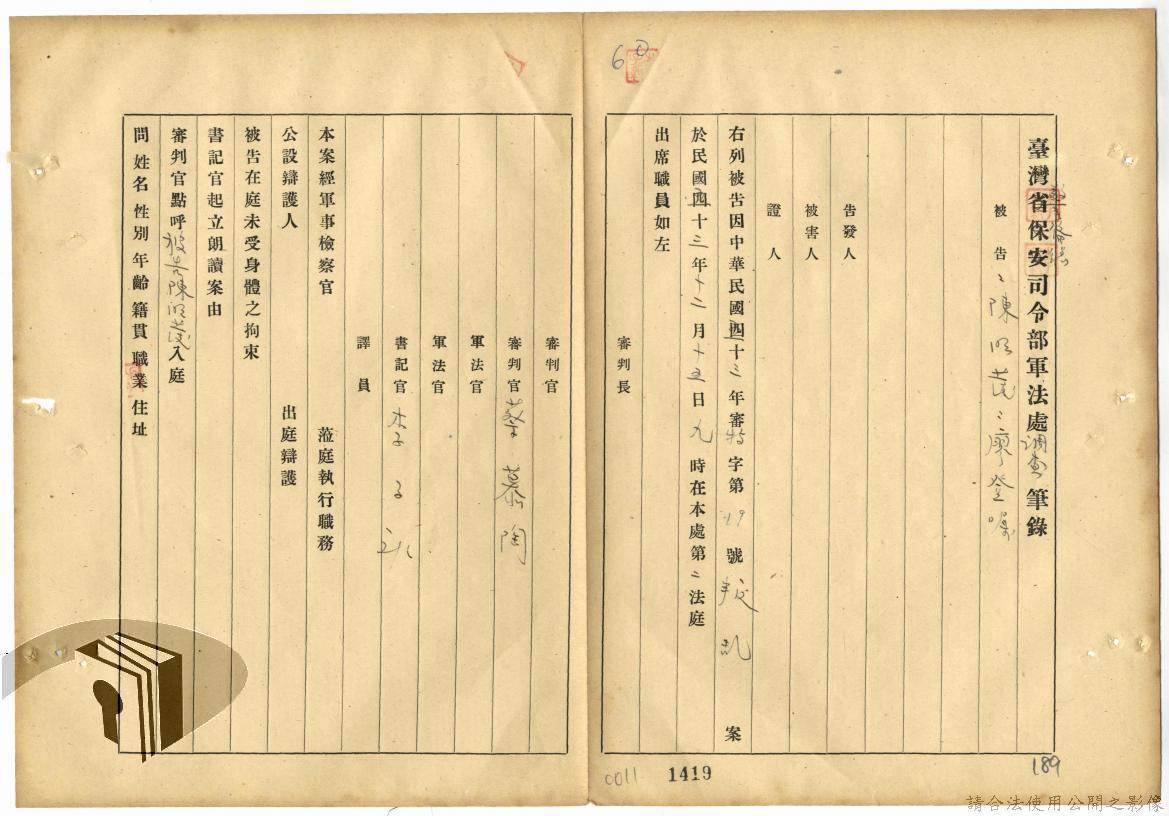 臺灣省保安司令部軍法處調查筆錄
被告 陳明茂 廖登
告發人
被害人
證人
右列被告因中華民國四十三年審特字第19號叛亂案
於民國四十三年十二月十五日九時在本處第二法庭
出席職員如左
審判長
審判官
審判官 蔡慕陶
軍法官
軍法官
書記官 李子
譯員
本案經軍事檢察官 蒞庭執行職務
公設辯護人 出庭辯護
被告在庭未受身體之拘束
書記官起立朗讀案由
審判官點呼被告陳明茂入庭
問姓名性別年齡籍貫職業住址
60
0011 1419
189
請合法使用公開之影像